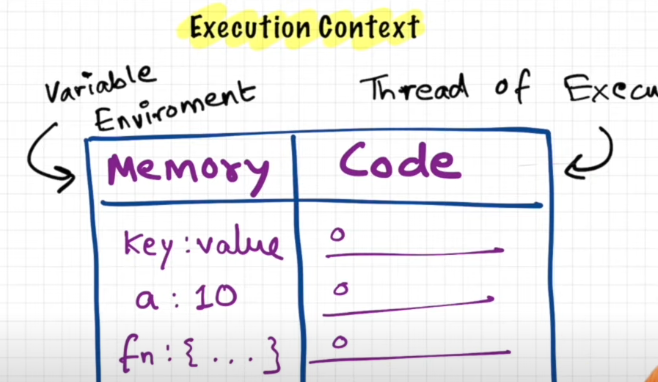 Execution Context
Variable
Enviroment
Thread of Execu
Memory
Code
key : value
a : 10
fn : { ... }